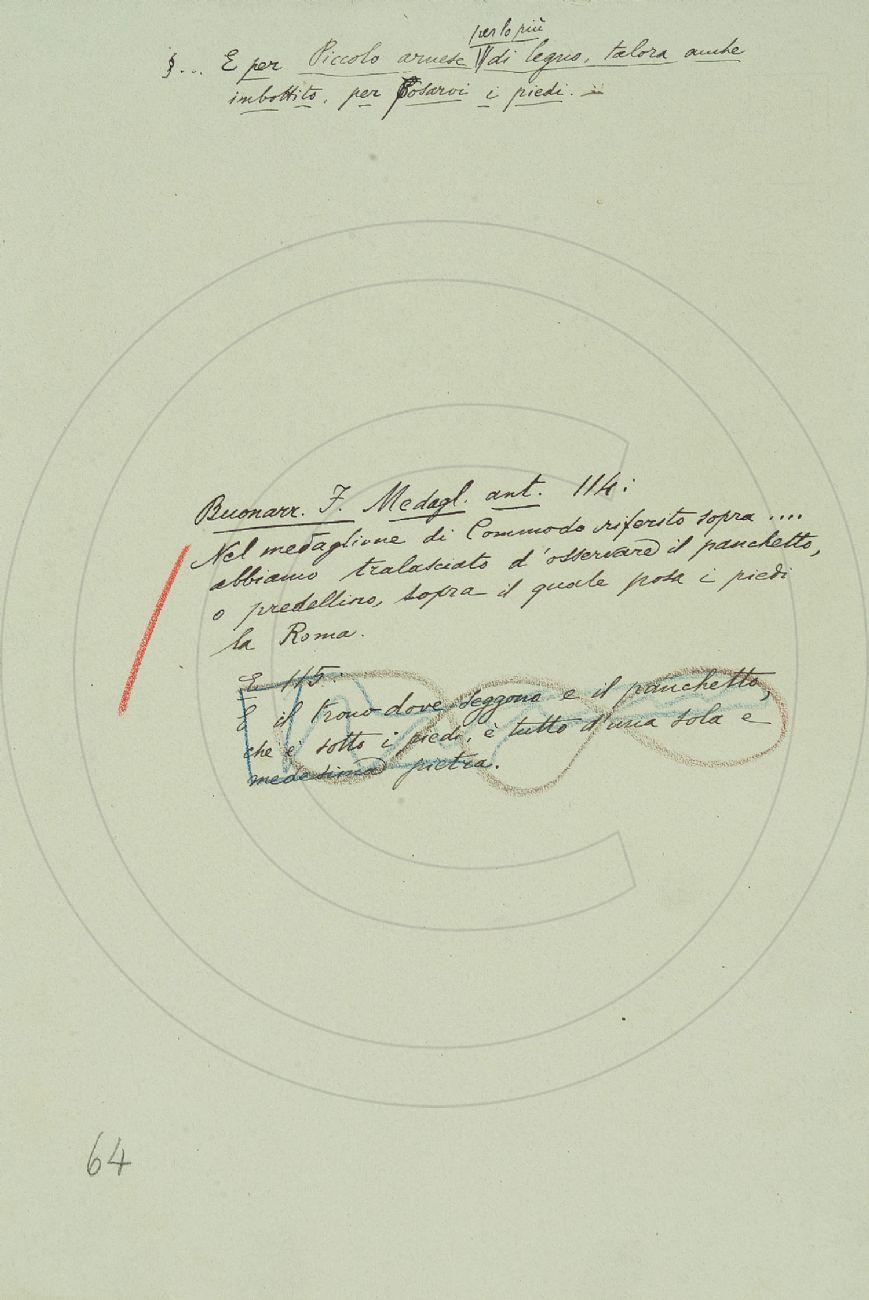 per lo più
§... E per Piccolo arnese di legno, talora anche
imbottito, per posarvi i piedi. =
Buonarr. F. Medagl. ant. 114:
Nel medaglione di Commodo riferito sopra ....
abbiamo tralasciato d'osservare il panchetto,
o predellino, sopra il quale posa i piedi
la Roma.
E 115:
E il trono dove seggono e il panchetto,
che è sotto i piedi, è tutto d'una sola e
medesima pietra.
64